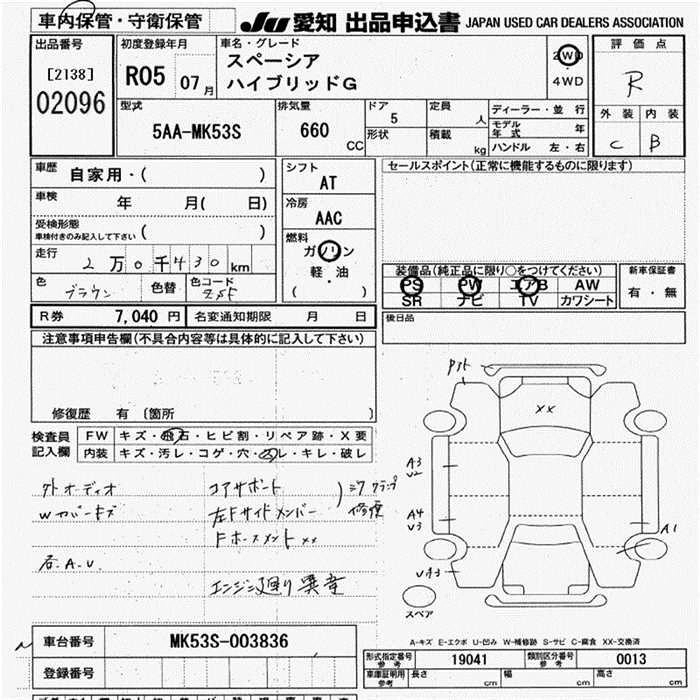 車内保管・守衛保管
JU 愛知 出品申込書 JAPAN USED CAR DEALERS ASSOCIATION
出品番号
[2138]
02096
初度登録年月
R05 07月
車名・グレード
スペーシア
ハイブリッドG
2WD
4WD
評価点
R
外装 内装
C B
型式
5AA-MK53S
排気量
660
CC
ドア
5
形状
定員
人
積載
kg
ディーラー・並 行
モデル年式 年
ハンドル 左・右
車歴
自家用・( )
車検
年 月( 日)
受検形態
車検付きのみ記入して下さい ( )
走行
2万0千430km
色
ブラウン
色替
色コード
シフト
AT
冷房
AAC
燃料
ガソリン
軽・油
( )
セールスポイント(正常に機能するものに限ります)
装備品(純正品に限り○をつけてください)
PS PW エアB AW
SR ナビ TV カワシート
新車保証書
有・無
後日品
R券 7,040円
名変通知期限 月 日
注意事項申告欄(不具合内容等は具体的に記入して下さい)
修復歴 有〔箇所 〕
検査員記入欄
FW キズ・飛石・ヒビ割・リペア跡・X要
内装 キズ・汚レ・コゲ・穴・スレ・キレ・破レ
外オーディオ
Wカバーキズ
コアサポート
左Fサイドメンバー
修復
A.U.
エンジン廻り異音
XX
A3
U2
A4
U3
UA3
A1
スペア
A-キズ E-エクボ U-凹み W-補修跡 S-サビ C-腐食 XX-交換済
車台番号 MK53S-003836
登録番号
形式指定番号
参考
19041
類別区分番号
参考
0013
車庫証明用
参考
長さ cm
幅 cm
高さ cm